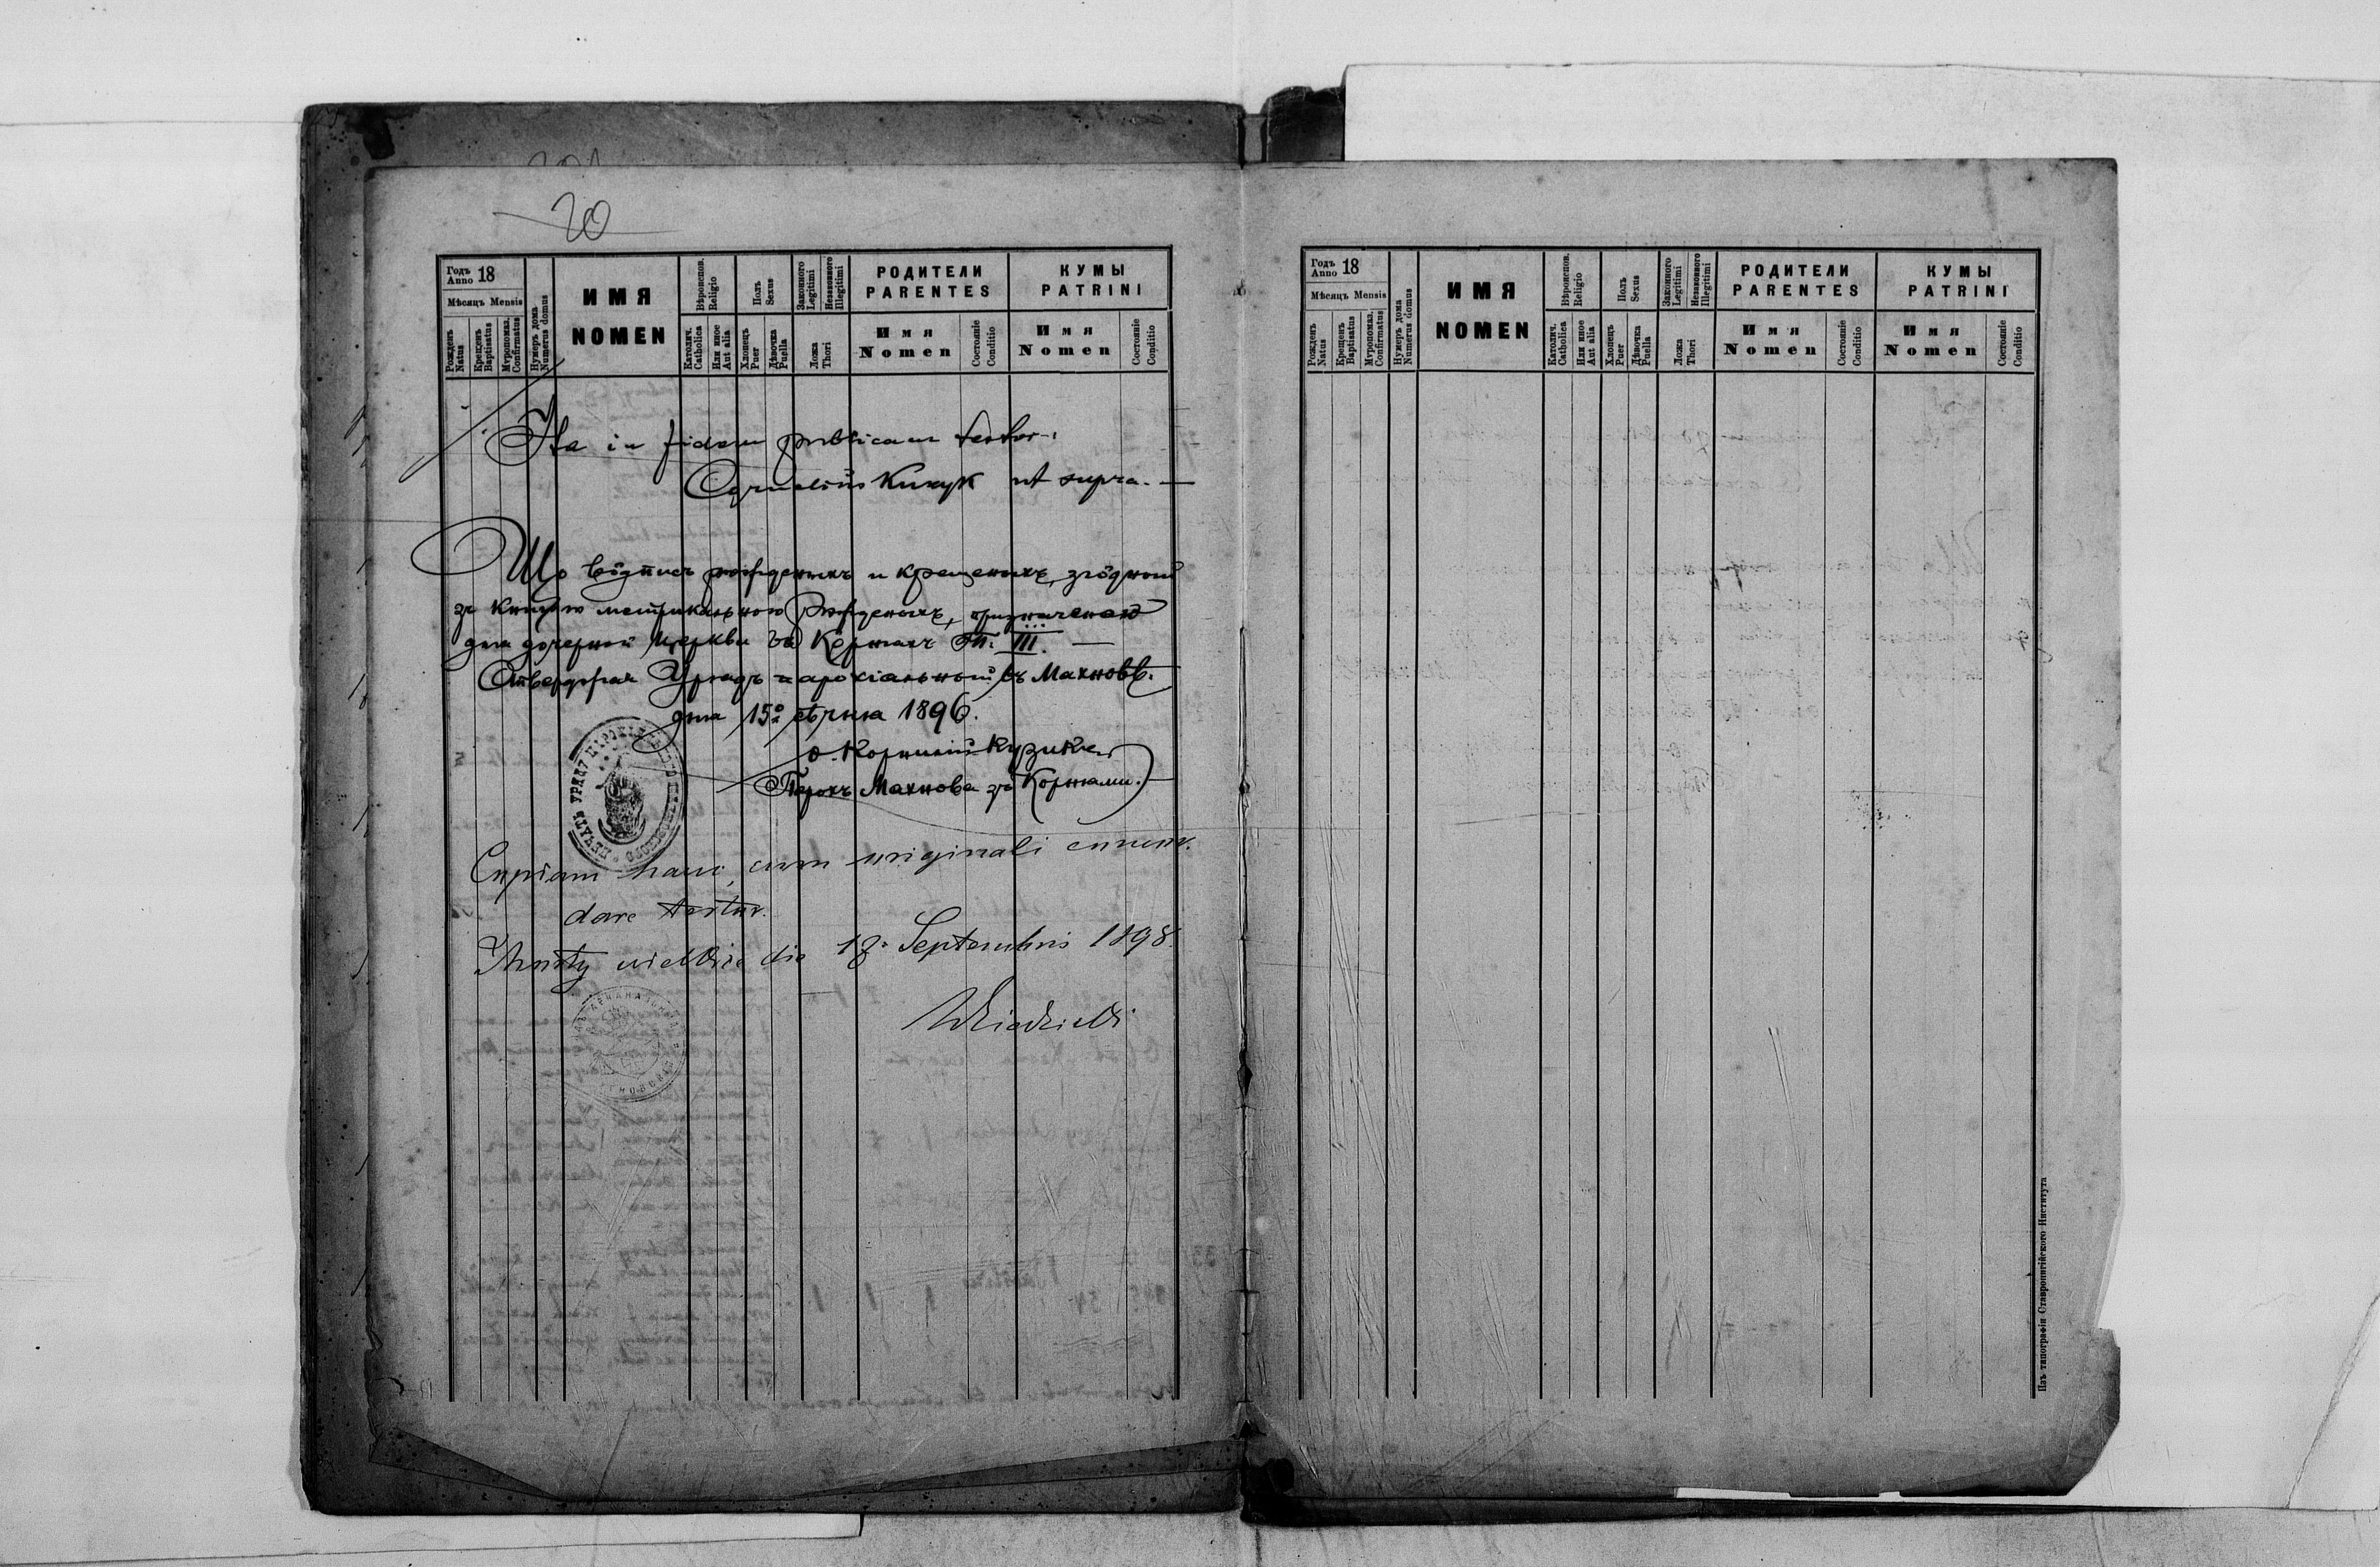 20
Годъ Anno 18
Мѣсяцъ Mensis
Рожденъ Natus
Крещенъ Baptisatus
Мѵропомаз. Confirmatus
Нумеръ дома Numerus domus
ИМЯ
NOMEN
Вѣроиспов. Religio
Католич. Catholica
Или иное Aut alia
Полъ Sexus
Хлопецъ Puer
Дѣвочка Puella
Законного Legitimi
Незаконного Illegitimi
Ложа Thori
РОДИТЕЛИ
PARENTES
Имя
Nomen
Состояніе Conditio
КУМЫ
PATRINI
Имя
Nomen
Состояніе Conditio
Ita in fidem publicam testor:
Cornelius Кизук ut supra. —
Що водпись рожденыхъ и крещеныхъ, згодный
зъ книгою метрикальною рожденыхъ, призначеною
для дочерной Церкви въ Коржахъ Т. III. —
Ствержая Урядъ парохіальный въ Махновѣ.
дня 15º серпня 1896.
о. Корнилій
Парохъ Махнова зъ Коржами. —
Copiam hanc, cum originali concor-
dare testor.
die 18. Septembris 1898.
Годъ Anno 18
Мѣсяцъ Mensis
Рожденъ Natus
Крещенъ Baptisatus
Мѵропомаз. Confirmatus
Нумеръ дома Numerus domus
ИМЯ
NOMEN
Вѣроиспов. Religio
Католич. Catholica
Или иное Aut alia
Полъ Sexus
Хлопецъ Puer
Дѣвочка Puella
Законного Legitimi
Незаконного Illegitimi
Ложа Thori
РОДИТЕЛИ
PARENTES
Имя
Nomen
Состояніе Conditio
КУМЫ
PATRINI
Имя
Nomen
Состояніе Conditio
Изъ типографіи Ставропигійского Института